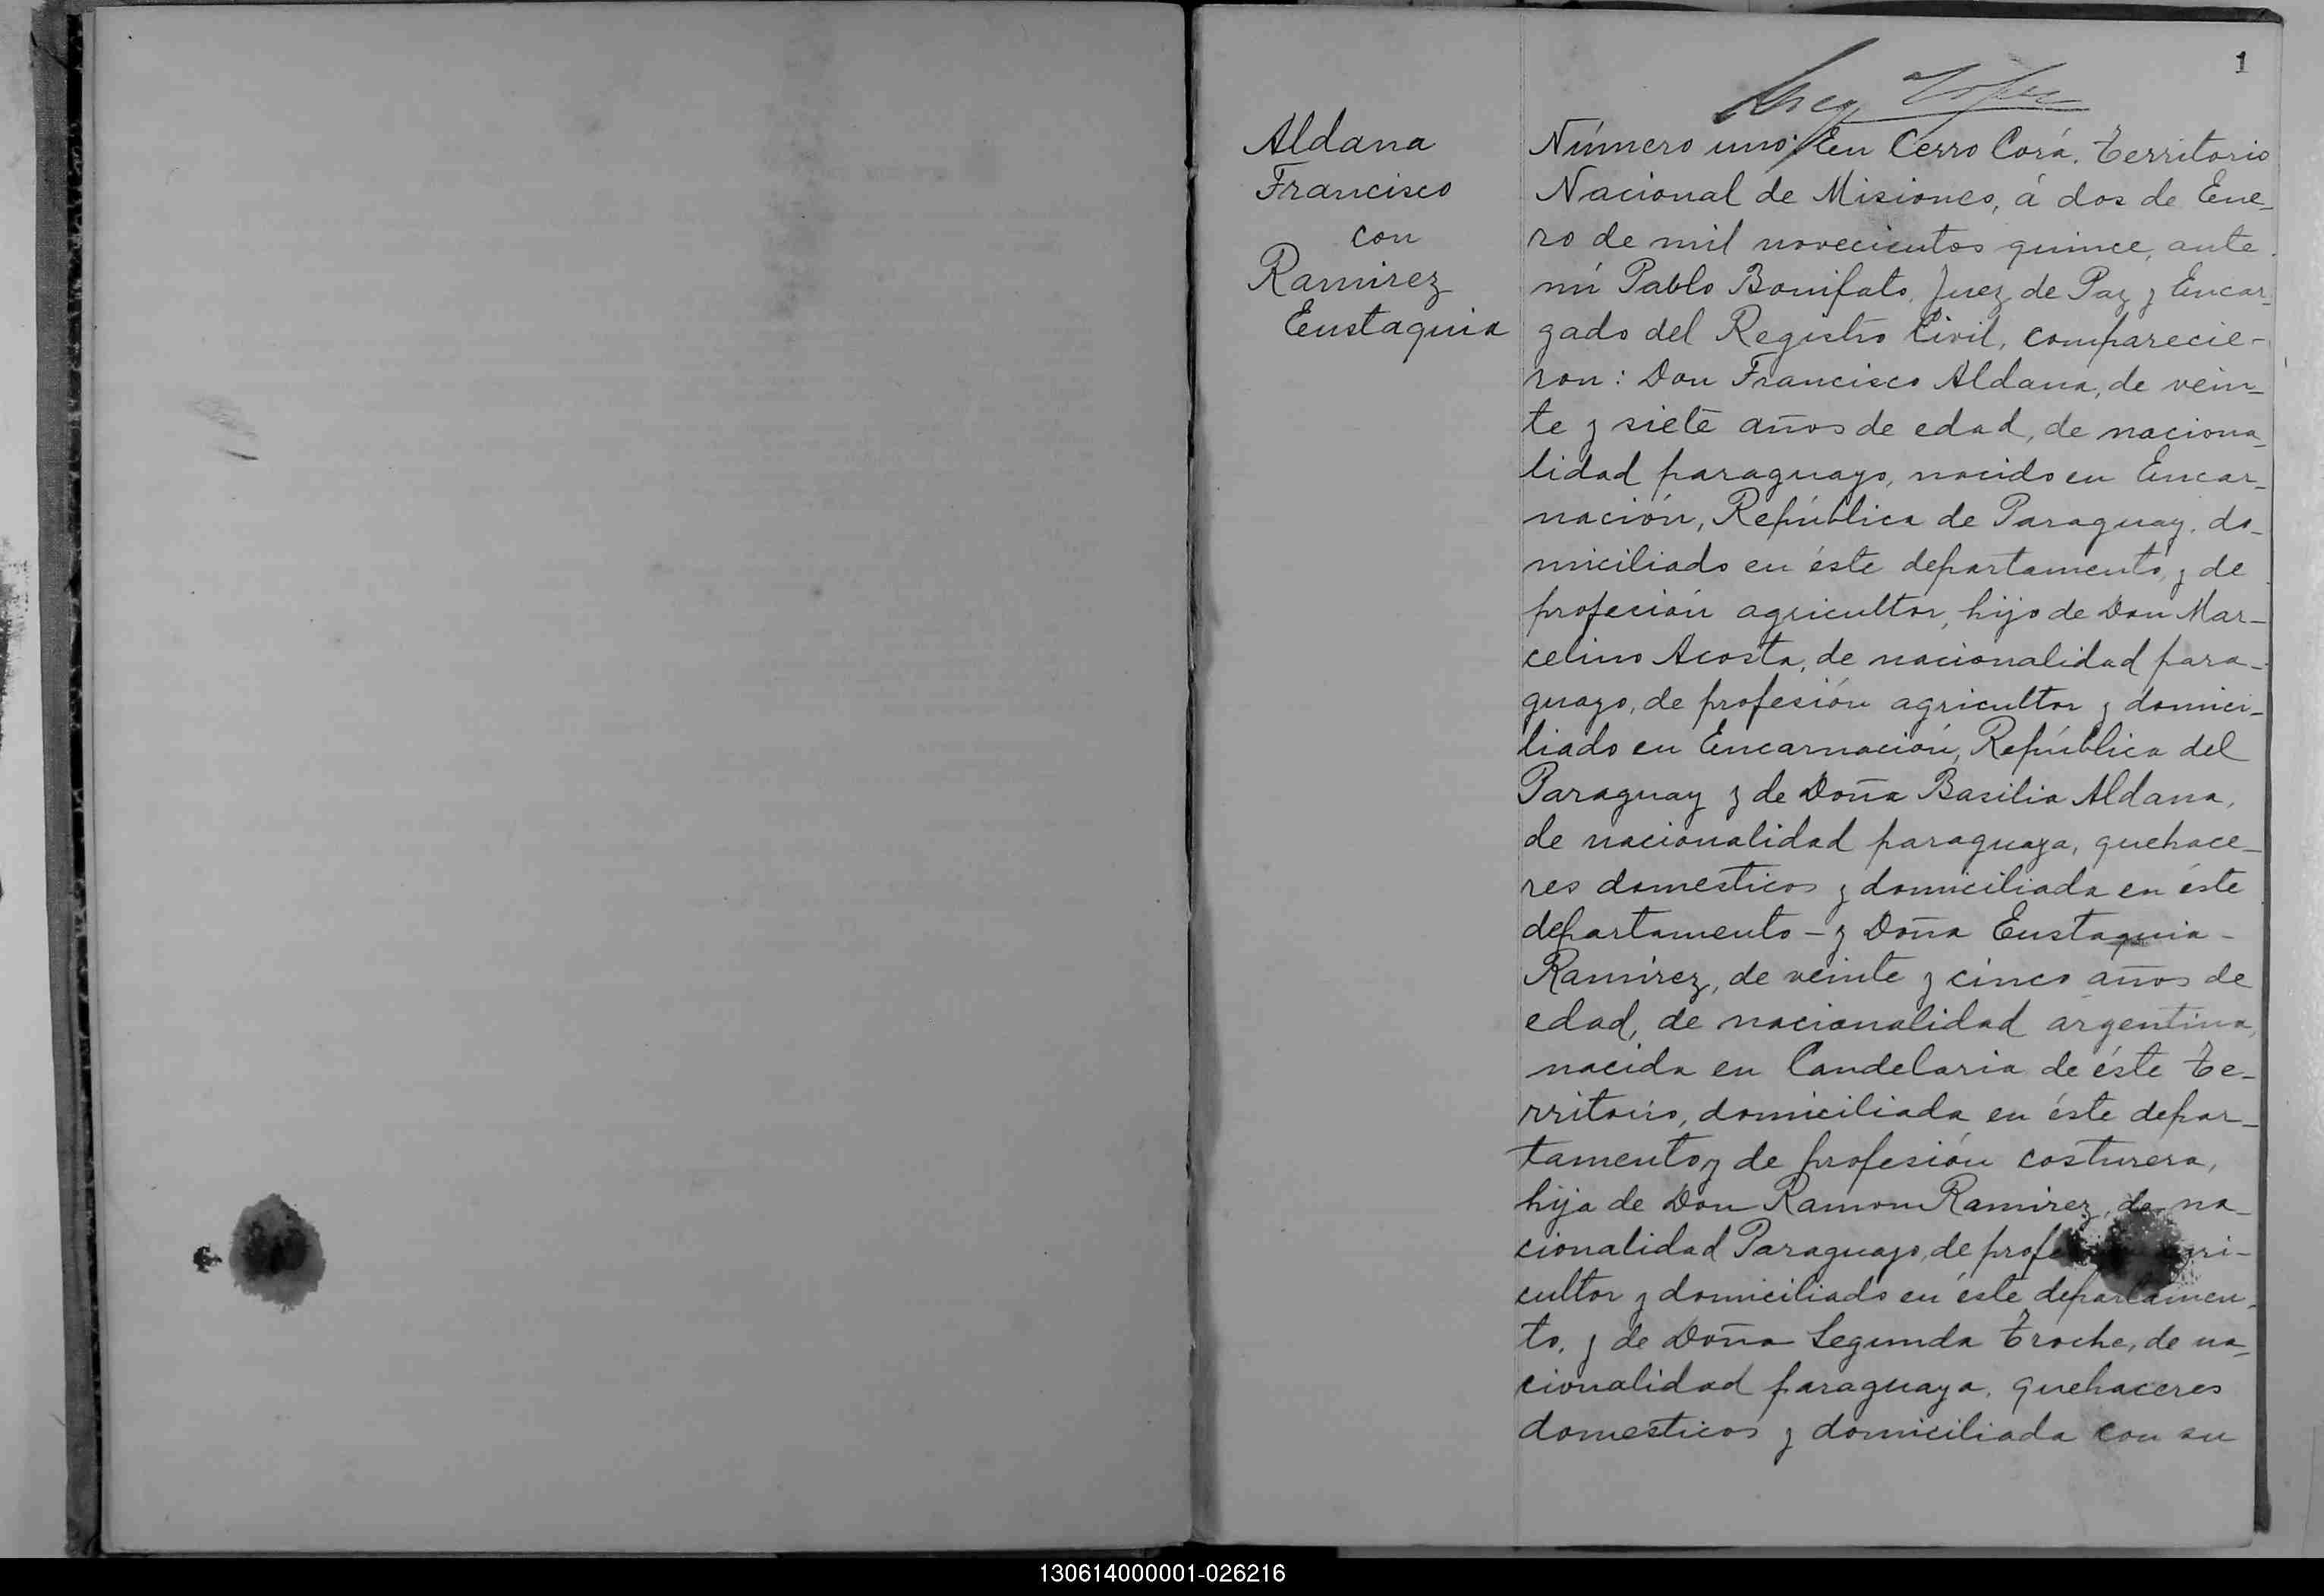 1
Aldana
Francisco
con
Ramirez
Eustaquia
Número uno: En Cerro Corá, Territorio
Nacional de Misiones, á dos de Ene-
ro de mil novecientos quince, ante
mi Pablo Bonifato, Juez de Paz y Encar-
gado del Registro Civil, comparecie-
ron: Don Francisco Aldana, de vein-
te y siete años de edad, de naciona-
lidad paraguayo, nacido en Encar-
nación, República de Paraguay, do-
miciliado en éste departamento, y de
profeción agricultor, hijo de Don Mar-
celino Acosta, de nacionalidad para-
guayo, de profesión agricultor y domici-
liado en Encarnación, República del
Paraguay y de Doña Basilia Aldana,
de nacionalidad paraguaya, quehace-
res domesticos y domiciliada en éste
departamento - y Doña Eustaquia -
Ramirez, de veinte y cinco años de
edad, de nacionalidad argentina,
nacida en Candelaria de éste Te-
rritorio, domiciliada en éste depar-
tamento y de profesión costurera,
hija de Don Ramon Ramirez, de na-
cionalidad Paraguayo, de
cultor y domiciliado en éste departamen-
to, y de Doña Segunda Troche, de na-
cionalidad paraguaya, quehaceres
domesticos y domiciliada con su
130614000001-026216